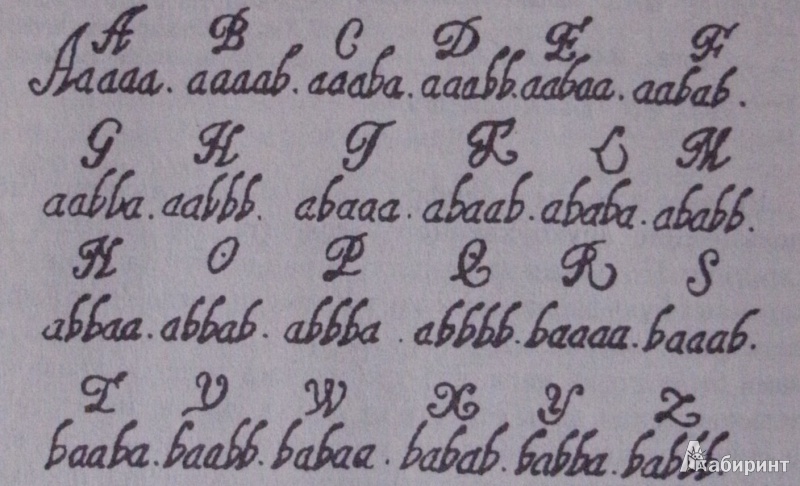 A B C D E F
Aaaaa. aaaab. aaaba. aaabb. aabaa. aabab.
G H I K L M
aabba. aabbb. abaaa. abaab. ababa. ababb.
N O P Q R S
abbaa. abbab. abbba. abbbb. baaaa. baaab.
T V W X Y Z
baaba. baabb. babaa. babab. babba. babbb.
Лабиринт